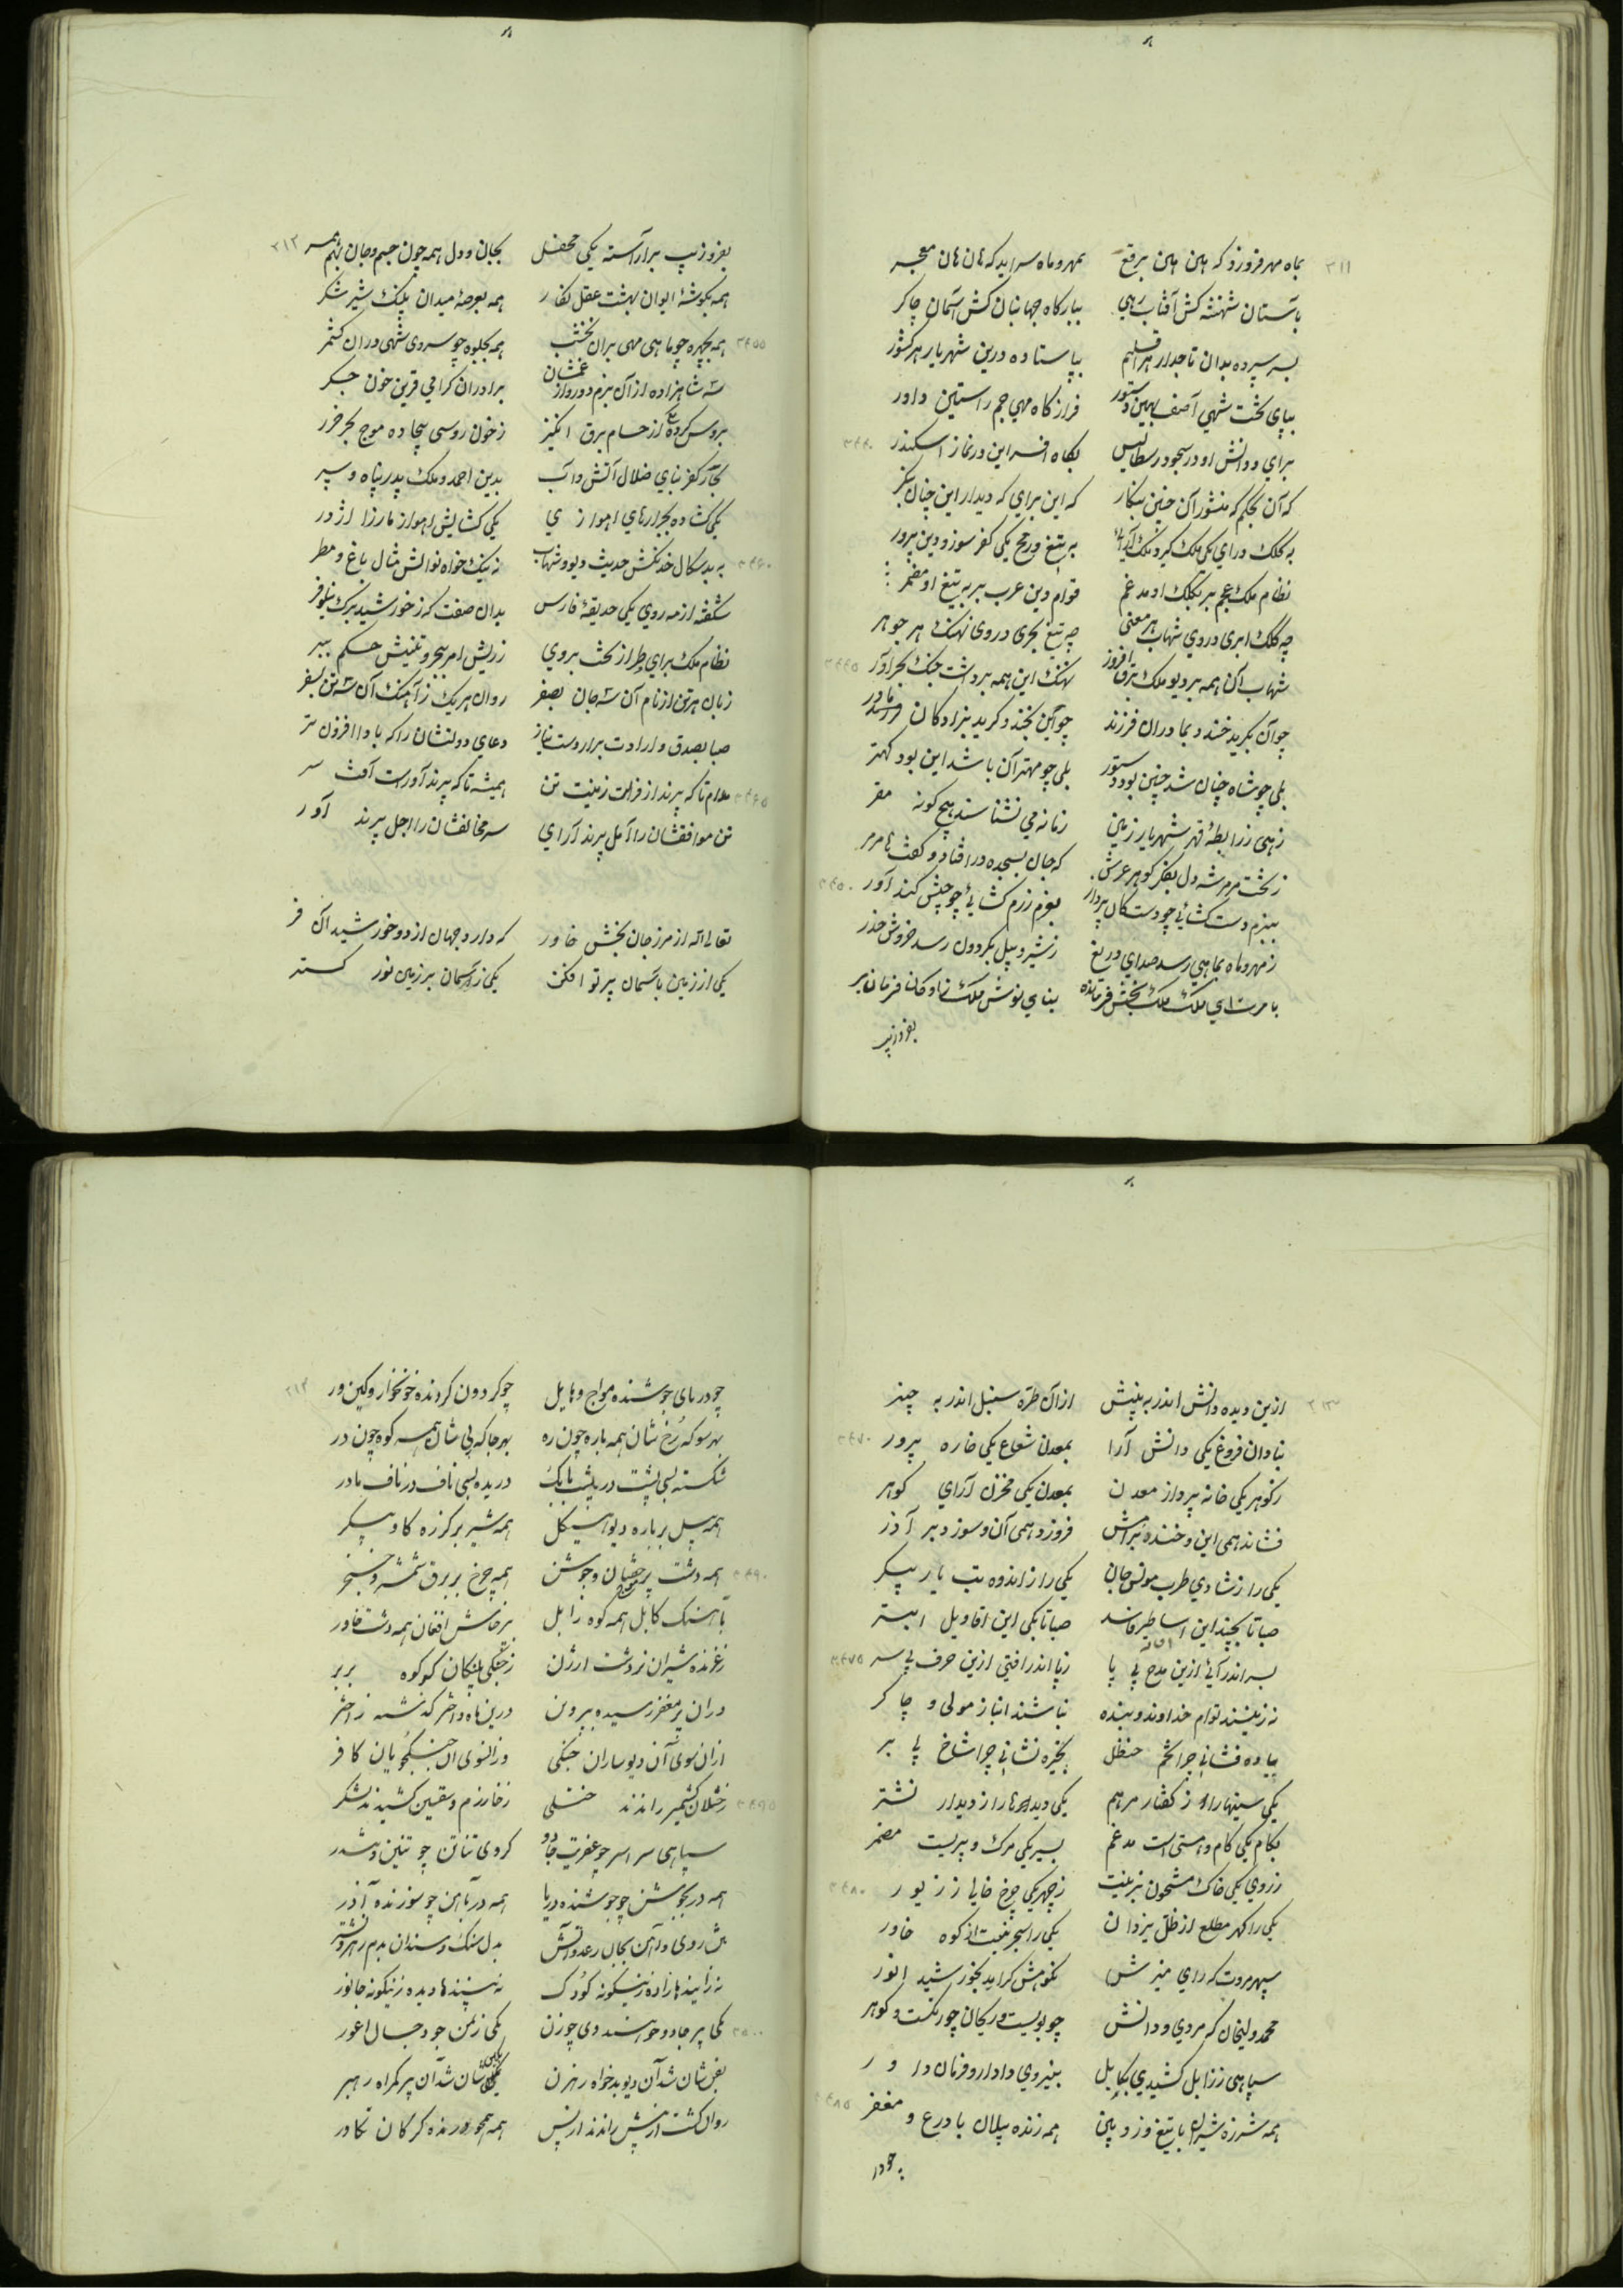 ۲۱۱
بماه مهر فروزد که هین هین برقع بمهر و ماه سراید که هان هان معجر
بآستان شهنشه کش آفتاب رهی ببارگاه جهانبان کش آسمان چاکر
بسر سپرده بدان تاجدار هر اقلیم بپا ستاده درین شهریار هر کشور
بپای تخت شهی آصف بهین دستور فراز گاه مهی جم راستین داور
برای و دانش او در سجود رسطالیس بگاه افسر این در نماز اسکندر
که آن بحکم که منشور آن چنین بنگار که این برای که دیدار این چنان بنگر
به کلک و رای یکی ملک گیر و ملک آرا به تیغ و رمح یکی کفر سوز و دین پرور
نظام ملک عجم بر بکلک او مدغم قوام دین عرب بر به تیغ او مضمر
چه کلک ابری در وی شهاب هر معنی چه تیغ بحری در وی نهنگ هر جوهر
شهاب آن همه بر دیو ملک برق افروز نهنگ این همه بر دشت جنگ بحر آور
چو آن بگرید خندد بمادران فرزند چو این بخندد گرید بزادگان مادر
بلی چو شاه چنان شد چنین بود دستور بلی چو مهتر آن باشد این بود کهتر
زهی ز رابطهٔ قهر شهریار زمین زمانه می نشناسد هیچ گونه مفر
ز تخت مرمر شه دل بفکر گوهر عرش که جان بسجده در افتاد و گفت ها مرمر
ببزم دست گشائی چو دستگان پردار بعزم رزم گشائی چو جیش کند آور
ز مهر و ماه بماهی رسد صدای دریغ ز شیر و پیل بگردون رسد خروش حذر
بامرت ای ملک ملک بخش فرمانده بنای نوش ملک زادگان فرمانبر
بفر و زیب
۲۱۲
بفر و زیب بر آراسته یکی محفل بجان و دل همه چون جسم و جان بهم همسر
همه بگوشهٔ ایوان بهشت عقل نگار همه بعرصهٔ میدان پلنگ شیر شکر
همه بچهره چو ماهی مهی بران نخشب همه بجلوه چو سروی شهی در آن کشمر
سه شاهزاده از آن بزم دور و از غمشان برادران گرامی قرین خون جگر
بروس کرده ز حسام برق انگیز ز خون روسی بیجاده موج بحر خزر
بجان کفر بنای ضلال آتش و آب بدین احمد و ملک پدر پناه و سپر
یکی گشاده بجرارهای اهوازی یکی گشایش اهواز مار زا اژدر
به بدسگال خدنگش حدیث دیو و شهاب به نیک خواه نوالش مثال باغ و مطر
شگفته از مه روی یکی حدیقهٔ فارس بدان صفت که ز خورشید برگ نیلوفر
نظام ملک برای طراز تخت بروی
زبان هر تن از نام آن سه جان بصفر روان هر یک ز آهنگ آن سه تن بسفر
صبا بصدق و ارادت برار دست نیاز دعای دولتشان را که باد افزون تر
مدام تا که پرند از فراخت زینت تن همیشه تا که پرند آورست آفت سر
تن موافقشان را امل پرند آرای سر مخالفشان را اجل پرند آور
تعالی الله از مرز جان بخش خاور که دارد جهان از دو خورشید آن فر
یکی از زمین بآسمان پرتو افکن یکی ز آسمان بر زمین نور گستر
۲۱۳
ازین دیده دانش اندر به بینش از آن طرّه سنبل اندر به چنبر
بنادان فروغ یکی دانش آرا بمعدن شعاع یکی خاره پرور
ز گوهر یکی خانه پرداز معدن بمعدن یکی مخزن آرای گوهر
فشاند همی این و خندد بر آتش فروزد همی آن و سوزد بر آذر
یکی را ز شادی طرب مونس جان یکی را ز اندوه تب یار پیکر
صبا تا بچند این اساطیر فاسد صبا تا بکی این اقاویل ابتر
بسر اندر آئی ازین مدح بی پا ز پا اندر افتی ازین حرف بی سر
نه زیبند توام خداوند و بنده نباشند انباز مولی و چاکر
بباده فشانی چرا تخم حنظل بخیره نشانی چرا شاخ بی بر
یکی سینها را ز گفتار مرهم یکی دیدها را ز دیدار نشتر
بکام یکی کام و هستی است مدغم بسیر یکی مرگ و پیریست مضمر
ز روی یکی خاک مشحون بزینت ز چهر یکی چرخ خالی ز زیور
یکی را گهر مطلع از ظل یزدان یکی را سحر منبت از کوه خاور
سپهر مروت که رای منیرش نکوهش گراید بخورشید انور
محمد ولیخان که مردی و دانش چو بویست و ریحان چو رنگست و گوهر
سپاهی ز زابل کشیدی بکابل بنیروی دادار و فرمان داور
همه شرزه شیران با تیغ و زوبین همه زنده پیلان با درع و مغفر
چو در
۲۱۴
چو دریای جوشنده مواج و هایل چو گردون گردنده خونخوار و کین ور
بهر سو که رخ شان همه باره چون ره بهر جا که پی شان همه کوه چون در
شکسته بسی پشت در پشت بابک دریده بسی ناف در ناف مادر
همه پیل بر باره دیو هیکل همه شیر بر گرزه گاو پیکر
همه دشت پر خفتان و جوشن همه چرخ بر برق شمشیر و خنجر
بآهنگ کابل همه کوه زابل بپرخاش افغان همه دشت خاور
ز غرنده شیران نر دشت ارژن ز جنگی پلنگان که کوه بربر
در آن پر مغفر رسیده ببروین درین ماه اختر گذشته ز اختر
از آن سوی آن دیوساران جنگی وز آنسوی آن جنگجویان کافر
ز ختلان کشمیر راندند ختلی ز خوارزم و سقین کشیدند لشکر
سپاهی سراسر چو عفریت جادو گروهی تناتن چو تنین و شدر
همه در بجوشن چو جوشنده دریا همه در بآهن چو سوزنده آذر
نه زایند مازاده زینگونه کودک نه بینند نادیده زینگونه جانور
یکی پیر جادو خراسنده وی چو زن یکی ز یمن جو دجال اعور
بفن شان شد آن دیو بدخواه رهزن یکی شان شد آن پیر گمراه رهبر
روان گشت از پیش راندند از پس همه همچو درنده گرگان تکاور